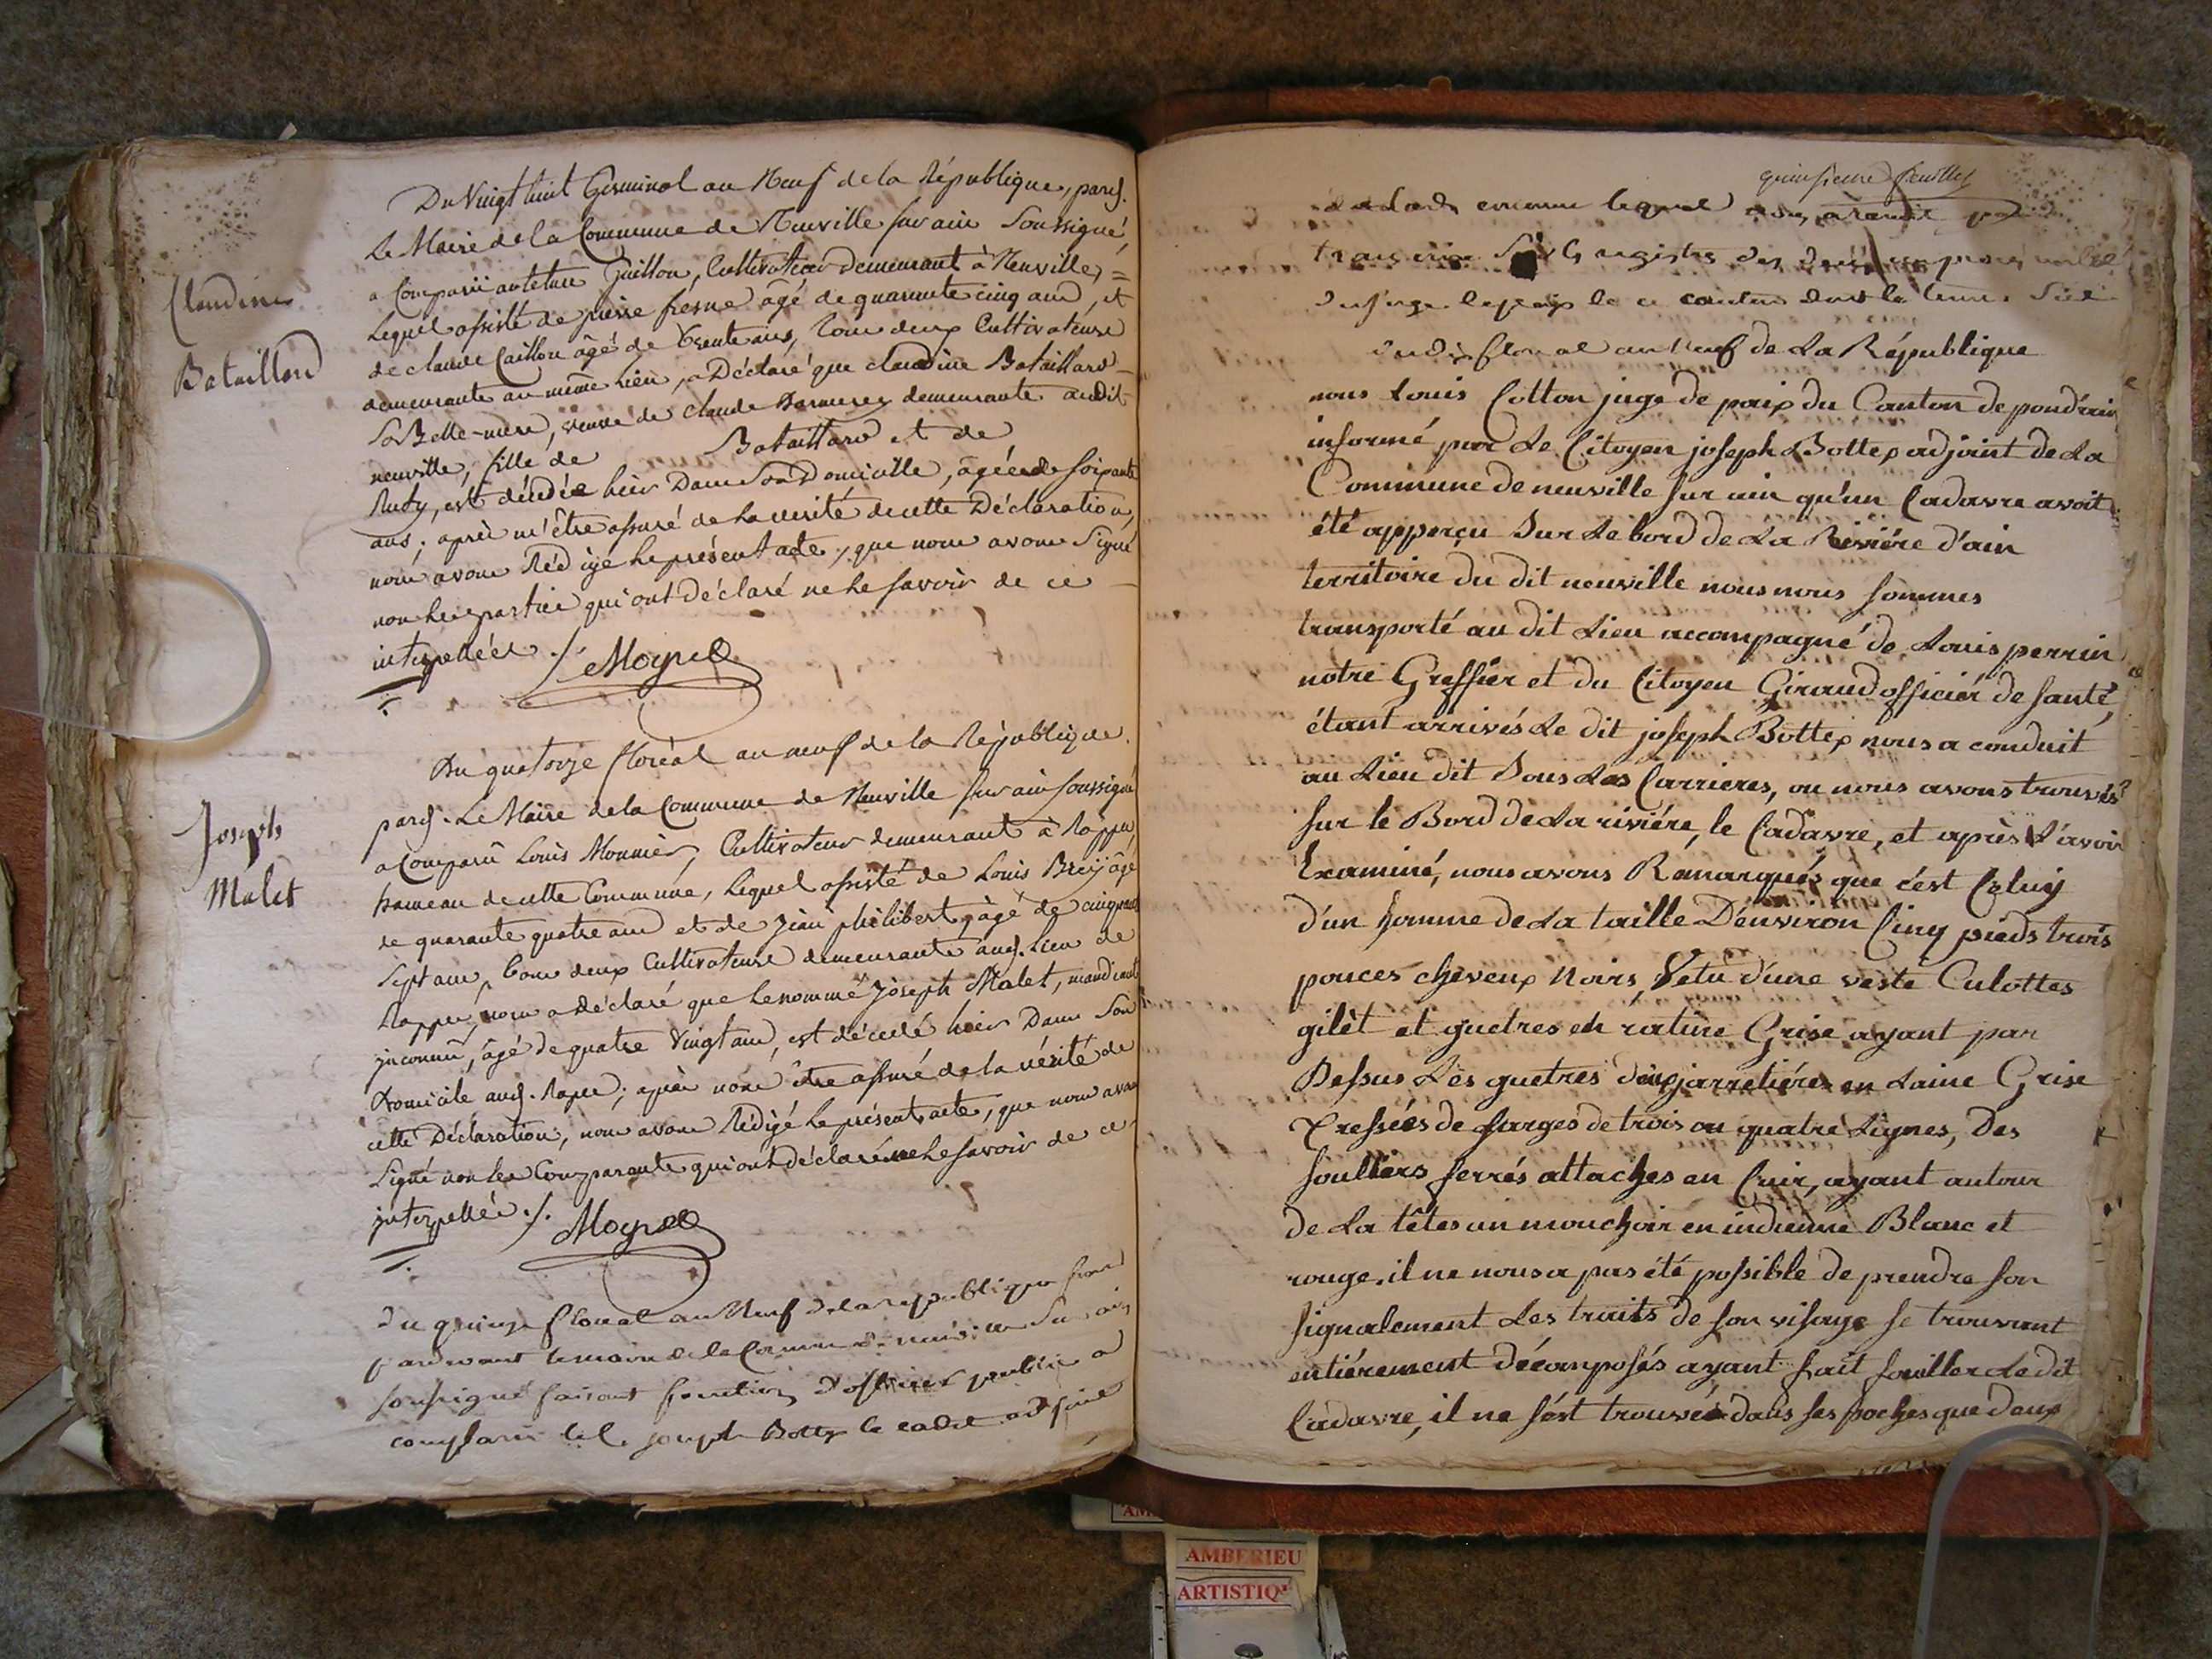 Claudine
Bataillard
Du Vingt huit Germinal an Neuf de la République, pard.
Le Maire de la Commune de Neuville sur ain Soussigné,
a Comparü anteleme Guillon, Cultivateur demeurant à Neuville, =
Lequel assisté de pierre fresne âgé de quarante cinq ans, et
de claude Caillon âgé de trente ans, tous deux Cultivateurs
demeurants au même Lieu, a Déclaré que claudine Bataillard
Sa Belle-mère, veuve de claude demeurante audit
neuville, fille de Bataillard et de
Ruty, est décédée hier Dans Son Domicille, âgée de soixante
ans; après m'être assuré de la vérité de cette Déclaration,
nous avons Rédigé le présent acte, que nous avons Signé
non les parties qui ont déclaré ne le savoir de ce
interpellées ./. Moyret
Joseph
Malet
Du quatorze floréal an neuf de la République
pard. Le Maire de la Commune de Neuville sur ain soussigné
a Comparü Louis Monnier, Cultivateur demeurant à Rappe,
hameau de cette Commune, Lequel assisté de Louis Brey âgé
de quarante quatre ans et de Jean philibert, âgé de cinquante
Sept ans, tous deux Cultivateurs demeurants aud. Lieu de
Rappe, nous a déclaré que le nommé Joseph Malet, mandiant
inconnü, âgé de quatre Vingt ans, est décédé hier Dans Son
Domicile aud. Rape; après nous être assuré de la vérité de
cette Déclaration, nous avons Rédigé le présent acte, que nous avons
Signé non les Comparants qui ont déclaré ne le savoir de ce
interpellés ./. Moyret
Du quinze floréal an Neuf de la république
pardevant le maire de la Commune de neuville Sur ain
soussigné faisant fonction d'officier public a
comparu le C. joseph Bottex le cadet adjoint
quinsieme feuillet
lequel nous a remis
transcrire Sur les registres des décès
du juge de paix de ce canton dont la teneur Suit
du dix floréal an neuf de La République
nous Louis Cotton juge de paix du Canton de pondain
informé par Le Citoyen joseph Bottex adjoint de La
Commune de neuville sur ain qu'un Cadavre avoit
été apperçu Sur Le bord de La Rivière d'ain
territoire du dit neuville nous nous sommes
transporté au dit Lieu accompagné de Louis perrin
notre Greffier et du Citoyen Giraud officier de santé,
étant arrivés Le dit joseph Bottex nous a conduit
au Lieu dit Sous Les Carrieres, ou nous avons trouvés
sur le Bord de La riviére, le Cadavre, et après L'avoir
Examiné, nous avons Remarqués que c'est Celuy
d'un homme de La taille D'environ Cinq pieds trois
pouces cheveux Noirs, Vetu d'une veste Culottes
gilèt et guetres en ratine Grise ayant par
Dessus Les guetres deux jarretiéres en Laine Grise
Tressées de Larges de trois ou quatre Lignes, Des
soulliers ferrés attaches en Cuir, ayant autour
de La têtes un mouchoir en indienne Blanc et
rouge, il ne nous a pas été possible de prendre son
signalement Les traits de son visage se trouvant
entiérement décomposés ayant fait fouiller Le dit
Cadavre, il ne s'ést trouvé dans ses poches que deux
AMBERIEU
ARTISTIQ